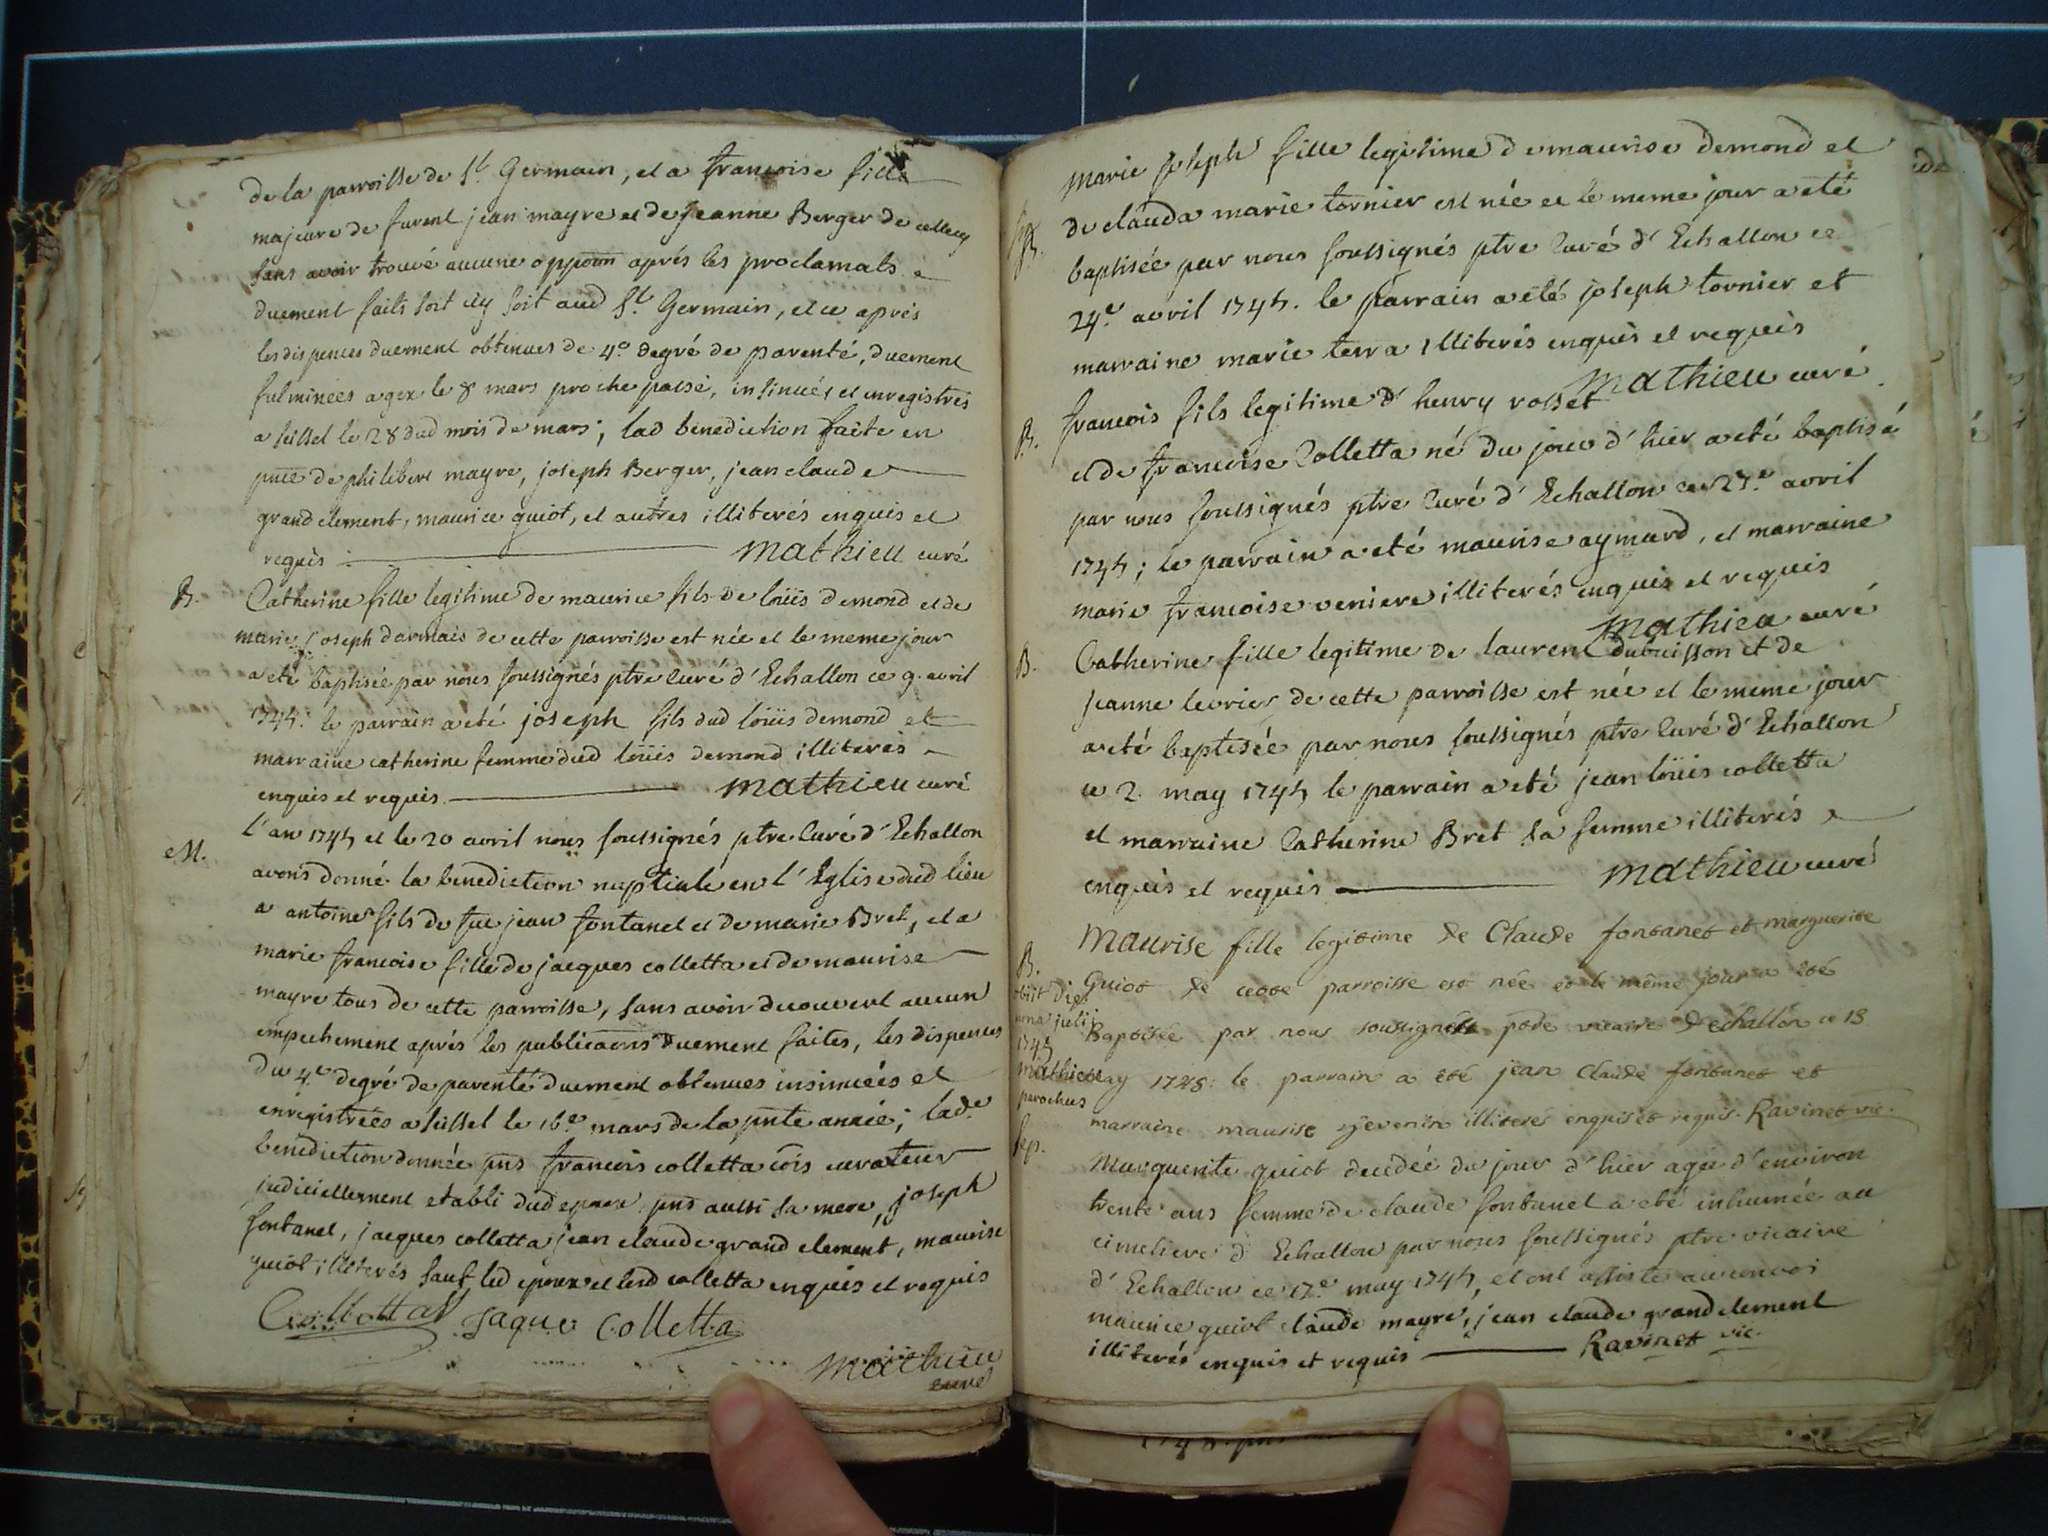 de la parroisse de St. Germain, et a francoise fille
majeure de furent jean mayre et de jeanne Berger de celle cy
sans avoir trouvé aucune oppoōn aprés les proclamats
duement faits soit icy soit aud St. Germain, et ce aprés
les dispences duement obtenues de 4e. degré de parenté, duement
fulminées a gex le 8 mars proche passé, insinués et enregistrés
a seissel le 28 dud mois de mars; lad benediction faite en
pnce de philibert mayre, joseph Berger, jean claude
grandclement, maurice guiot, et autres illiterés enquis et
requis Mathieu curé
B. Catherine fille legitime de maurice fils de loüis demond et de
marie joseph darmais de cette parroisse est née et le meme jour
a eté baptisée par nous soussignés ptre curé d'Echallon ce 9. avril
1745. le parrain a eté joseph fils dud loüis demond et
marraine catherine femme dud loüis demond illiterés
enquis et requis Mathieu curé
M. l'an 1745 et le 20 avril nous soussignés ptre curé d'Echallon
avons donné la benediction nuptiale en l'Eglise dud lieu
a antoine fils de fue jean fontanel et de marie Bret, et a
marie francoise fille de jacques colletta et de maurise
mayre tous de cette parroisse, sans avoir decouvert aucun
empechement aprés les publicaōns duement faites, les dispences
du 4e. degré de parenté duement obtenues insinuées et
enregistrées a seissel le 16e. mars de la pnte année; lade.
benediction donnée pns francois colletta cōis curateur
judiciellement etabli dud epoux pns aussi sa mere, joseph
fontanel, jacques colletta jean claude grand clement, maurise
guiot illiterés sauf led epoux et lesd colletta enquis et requis
Colletta Jaque Colletta
Mathieu
curé
marie joseph fille legitime de maurise demond et
B. de clauda marie tornier est née et le meme jour a eté
baptisée par nous soussignés ptre curé d'Echallon ce
24e. avril 1745. le parrain a eté joseph tornier et
marraine marie terra illiterés enquis et requis
Mathieu curé
B. francois fils legitime d'henry rosset
et de francoise Colletta né du jour d'hier a eté baptisé
par nous soussignés ptre curé d'Echallon ce 27e. avril
1745; le parrain a eté maurise aymard, et marraine
marie francoise veniere illiterés enquis et requis
Mathieu curé
B. Catherine fille legitime de laurent dubuisson et de
jeanne levrier de cette parroisse est née et le meme jour
a eté baptisée par nous soussignés ptre curé d'Echallon
ce 2. may 1745 le parrain a eté jean loüis colletta
et marraine Catherine Bret sa femme illiterés
enquis et requis Mathieu curé
Maurise fille legitime de Claude fontanet et marguerite
B. Guiot de cette parroisse est née et le même jour a eté
obiit die
nona julij
1745
Mathieu
parochus
Baptisée par nous soussignés ptre vicaire d'echallon ce 13
may 1745: le parrain a eté jean Claude fontanet et
marraine maurise illiterés enquis et requis. Ravinet vic.
Sep. Marguerite guiot decedée du jour d'hier agée d'environ
trente ans femme de claude fontanel a eté inhumée au
cimetiere d'Echallon par nous soussignés ptre vicaire
d'Echallon ce 17e. may 1745, et ont assisté au convoi
maurice guiot claude mayre, jean claude grand clement
illiterés enquis et requis Ravinet vic.